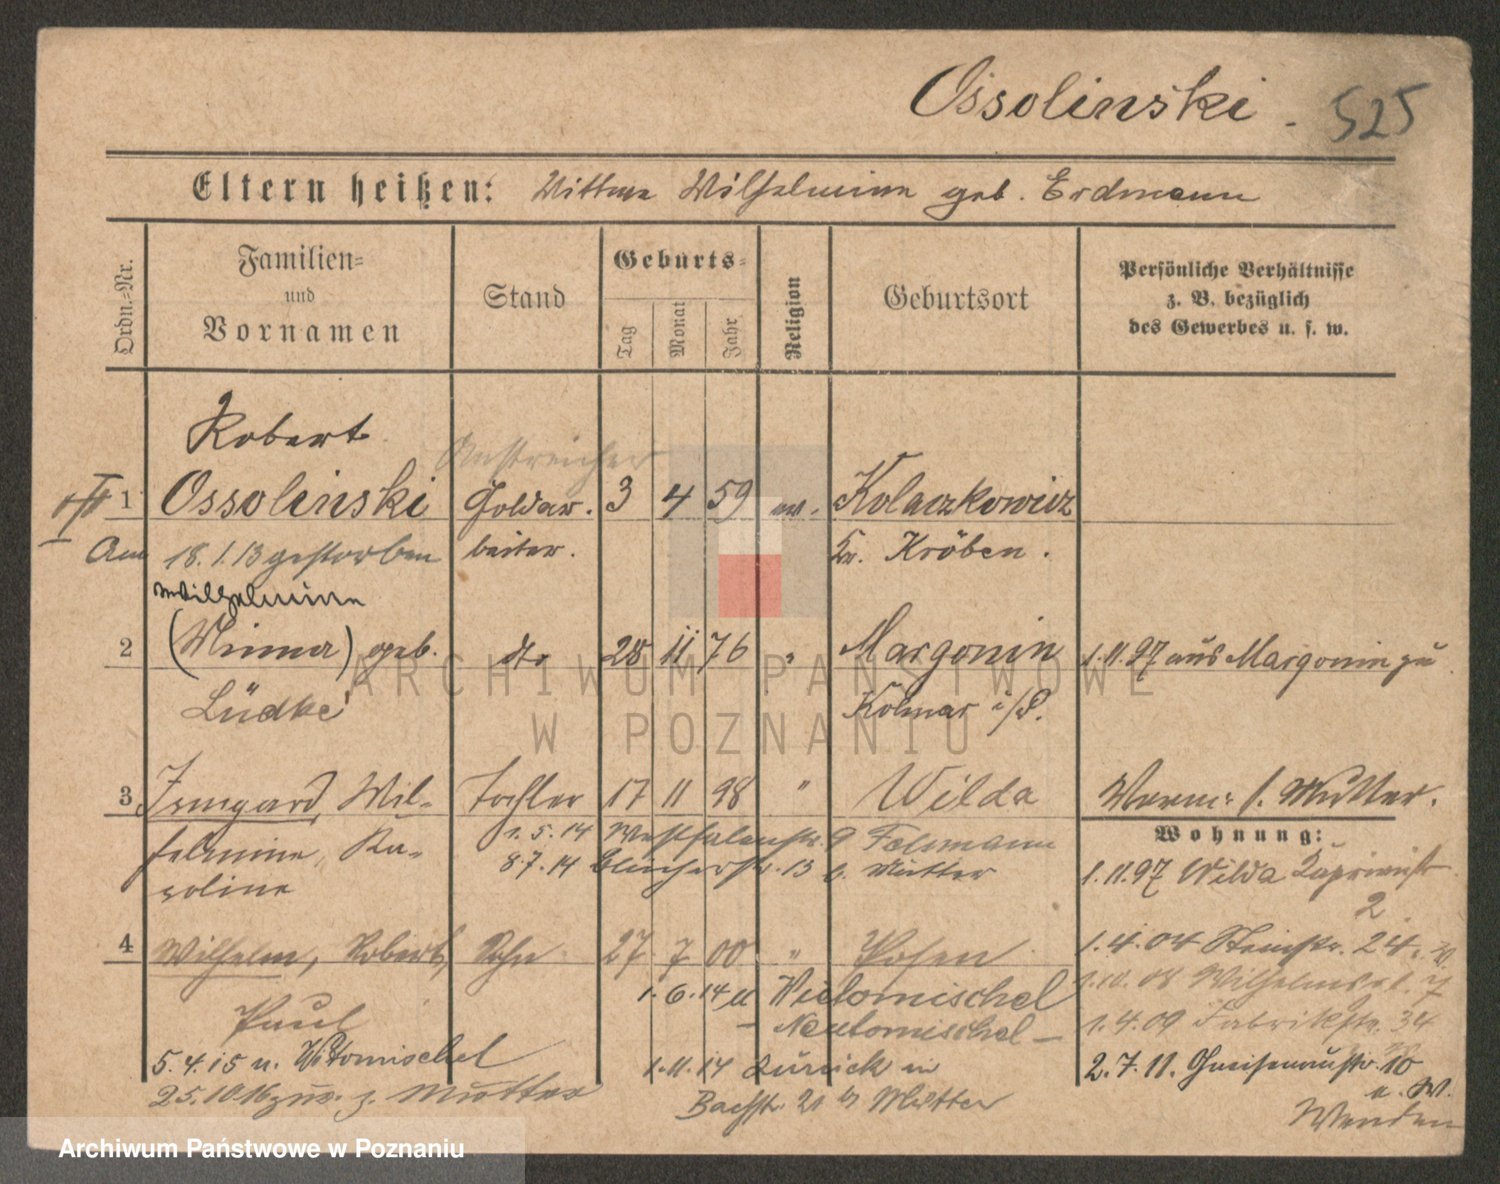 Ossolinski - 525
Eltern heißen: Wittwe Wilhelmine geb. Erdmann
Ordn.=Nr.
Familien=
und
Vornamen
Stand
Geburts=
Tag
Monat
Jahr
Religion
Geburtsort
Persönliche Verhältnisse
z. B. bezüglich
des Gewerbes u. s. w.
Robert
Anstreicher
1 Ossolinski Goldar- 3 4 59 ev. Kolaczkowicz
Am 18.1.13 gestorben beiter. Kr. Kröben.
Wilhelmine
2 (Minna) geb. dto 28 11 76 " Margonin 1.11.97 aus Margonin zu
Lüdke Kolmar i/P.
3 Irmgard, Wil- Tochter 17 11 98 " Wilda Verm: s. Mutter.
helmine, Ka- 1.5.14 Westfalenstr. 9 Felsmann
Wohnung:
roline 8.7.14 Blücherstr. 13 b. Mutter
1.11.97 Wilda
2
4 Wilhelm, Robert, Sohn 27 7 00 " Posen
1.4.04 Steinstr. 24.
Paul 1.6.14 u Wietomischel
1.10.08 Wilhelmstr. 7
- Neutomischel -
1.4.09 Fabrikstr. 34
5.4.15 n. Witomischel 1.11.14 Zurück in
2.7.11. Gneisenaustr. 10
25.10.16 zur. z. Mutter Bachstr. 21 b Mutter
u. W.
Wenden
ARCHIWUM PAŃSTWOWE
W POZNANIU
Archiwum Państwowe w Poznaniu